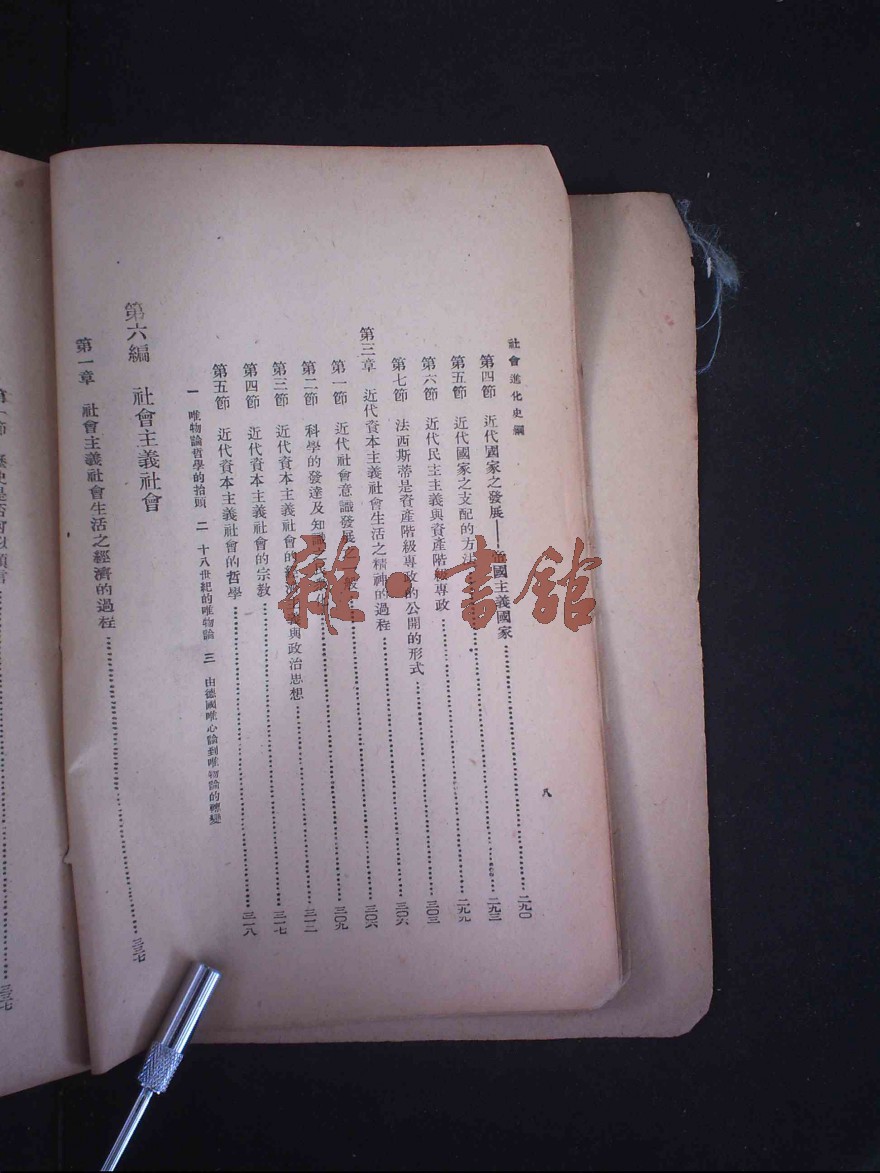 社會進化史綱
第四節 近代國家之發展——帝國主義國家 二九〇
第五節 近代國家之支配的方法 二九三
第六節 近代民主主義與資產階級專政 二九九
第七節 法西斯蒂是資產階級專政的公開的形式 三〇三
第三章 近代資本主義社會生活之精神的過程 三〇六
第一節 近代社會意識發展 三〇六
第二節 科學的發達及知識 三〇九
第三節 近代資本主義社會的經濟 與政治思想 三一三
第四節 近代資本主義社會的宗教 三一七
第五節 近代資本主義社會的哲學 三一八
一 唯物論哲學的抬頭 二 十八世紀的唯物論 三 由德國唯心論到唯物論的轉變
第六編 社會主義社會
第一章 社會主義社會生活之經濟的過程 三三七
八
第一節 歷史是否會 三三七
雜·書館